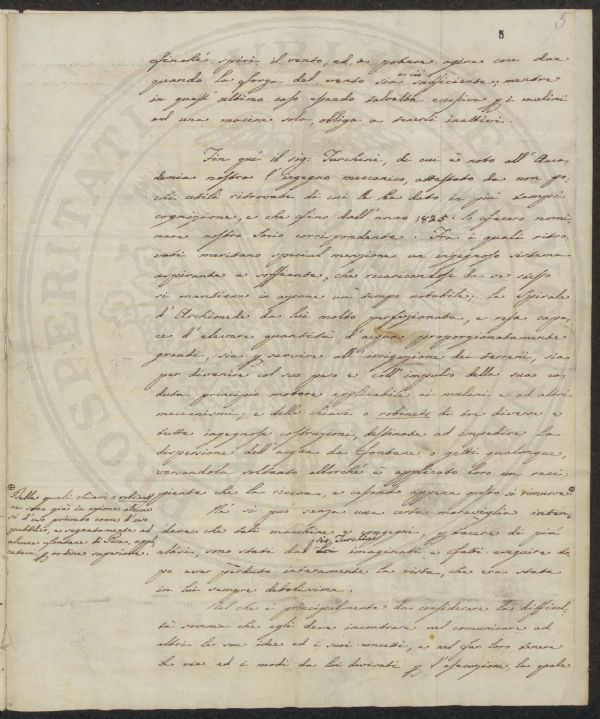 5
8
finché spiri il vento, ed a potere agire con due
quando la forza del vento sia a ciò sufficiente; mentre
in quest' ultimo caso essendo talvolta eccessiva p i mulini
ad una macine sola, obliga a tenerli inattivi.
Fin qui il sig: Turchini, di cui è noto all' Acca-
demia nostra l' ingegno meccanico, attestato da non po-
chi utili ritrovati di cui le ha dato in più tempi
cognizione, e che fino dall' anno 1825. lo fecero nomi-
nare nostro Socio corrispondente. Tra i quali ritro-
vati meritano special menzione un ingegnoso sistema
aspirante e soffiante, che ricaricandosi da se stesso
si mantiene in azione un tempo notabile; la Spirale
d' Archimede da lui molto perfezionata, e resa capa-
ce d' elevare quantità d' acqua proporzionatamente
grandi, sia p servire all' irrigazione dei terreni, sia
per divenire col suo peso e coll' impulso della sua ca-
duta principio motore applicabile ai mulini e ad altri
meccanismi; e delle chiavi o robinets di tre diverse e
tutte ingegnose costruzioni, destinate ad impedire la
dispersione dell' acqua da fontane o getti qualunque,
versandola soltanto allorché è applicato loro un reci-
piente che la riceva, e cessando appena questo si rimuove ⊕
⊕ Delle quali chiavi o robinets
ne sono già in azione alcune
sì d' uso privato come d' uso
pubblico, e segnatamente ad
alcune fontane di Pisa, appli-
catevi p ordine superiore.
Né si può senza una certa maraviglia inten-
dere che tali macchine e congegni, p tacere di più
altri, sono stati dal sig. Turchini imaginati e fatti eseguire do-
po aver perduto interamente la vista, che era stata
in lui sempre debolissima.
Nel che è principalmente da considerare la difficol-
tà somma che egli deve incontrare nel comunicare ad
altri le sue idee ed i suoi concetti, e nel far loro tenere
le vie ed i modi da lui divisati p l' esecuzione, la quale